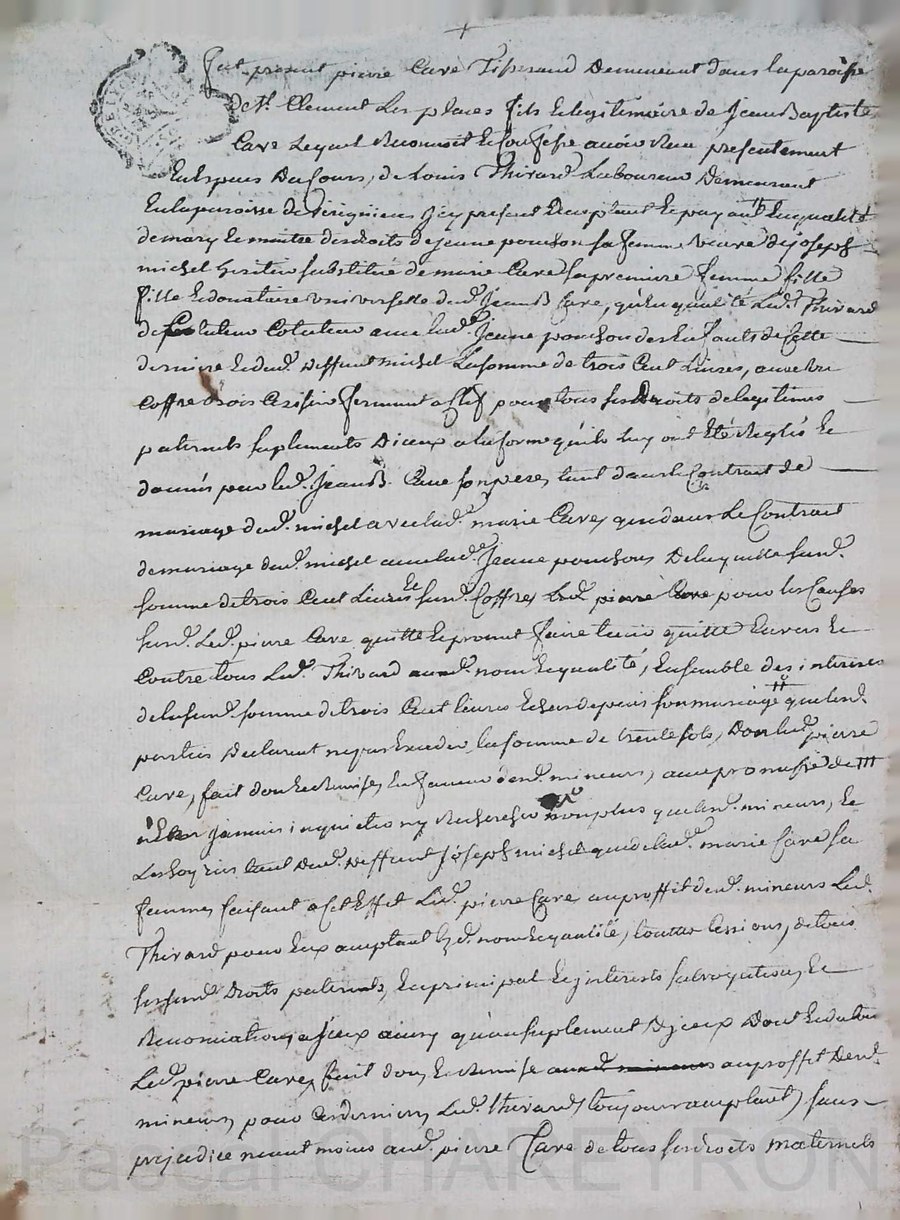 fut present pierre Cave Tisserand Demeurant dans la paroisse
de St. Clement Les places fils Et legitimaire de Jean Baptiste
Cave Lequel Reconnoit Et Confesse avoir Receu presentement
En Especes Du Cours, de Louis Thivard Laboureur Demeurant
En la paroisse de Jcy present Acceptant Et payant En qualité
de mary Et maitre des droits de Jeane ponchon sa femme veuve de joseph
michel heritier substitué de marie Cave sa premiere femme fille
fille Et donataire universelle dud. Jean B. Cave, qu'En qualité Led. Thivard
de Cotuteur avec lad. Jeane ponchon des Enfants de Cette
derniere Et dud. deffunt michel La somme de trois Cent Livres, avec un
Coffre bois Cerisier fermant a Clef pour tous ses Droits de legitimes
paternels suplements D'iceux a la forme qu'ils luy ont Eté Reglés Et
donnés par led. Jean B. Cave son pere, tant dans le Contrat de
mariage dud. michel avec lad. marie Cave, que dans Le Contrat
de mariage dud. michel avec lad. Jeane ponchon, De laquelle susd.
somme de trois Cent Livres Et susd. Coffre, Led. pierre Cave pour les Causes
susd. Led. pierre Cave quitte Et promet faire tenir quitte Envers Et
Contre tous Led. Thivard aud. nom Et qualité, Ensemble des interets
de la susd. somme de trois Cent livres Echus depuis son mariage que lesd.
parties Declarent ne pas Exceder la somme de trente sols, Dont led. pierre
Cave, fait don Et Remise, En faveur desd. mineurs, avec promesse de
n'En jamais inquietter ny Rechercher non plus que lesd. mineurs, Et
Les hoyries tant Dud. Deffunt Joseph michel que de lad. marie Cave sa
femme, faisant a Cet Effet Led. pierre Cave au proffit desd. mineurs Led.
Thivard pour Eux acceptant aud. nom Et qualité, touttes Cessions, de tous
ses susd. Droits paternels, En principal Et interets subrogations, Et
Renonciations, a jceux aussy qu'au suplement D'jceux Dont Et du tout
Led. pierre Cave, fait don, Et Remise aud. mineurs au proffit Desd.
mineurs, pour Ces derniers Led. thivard (toujours acceptant) sans
prejudice neant moins aud. pierre Cave de tous ses droits maternels
Pascal CHAREYRON